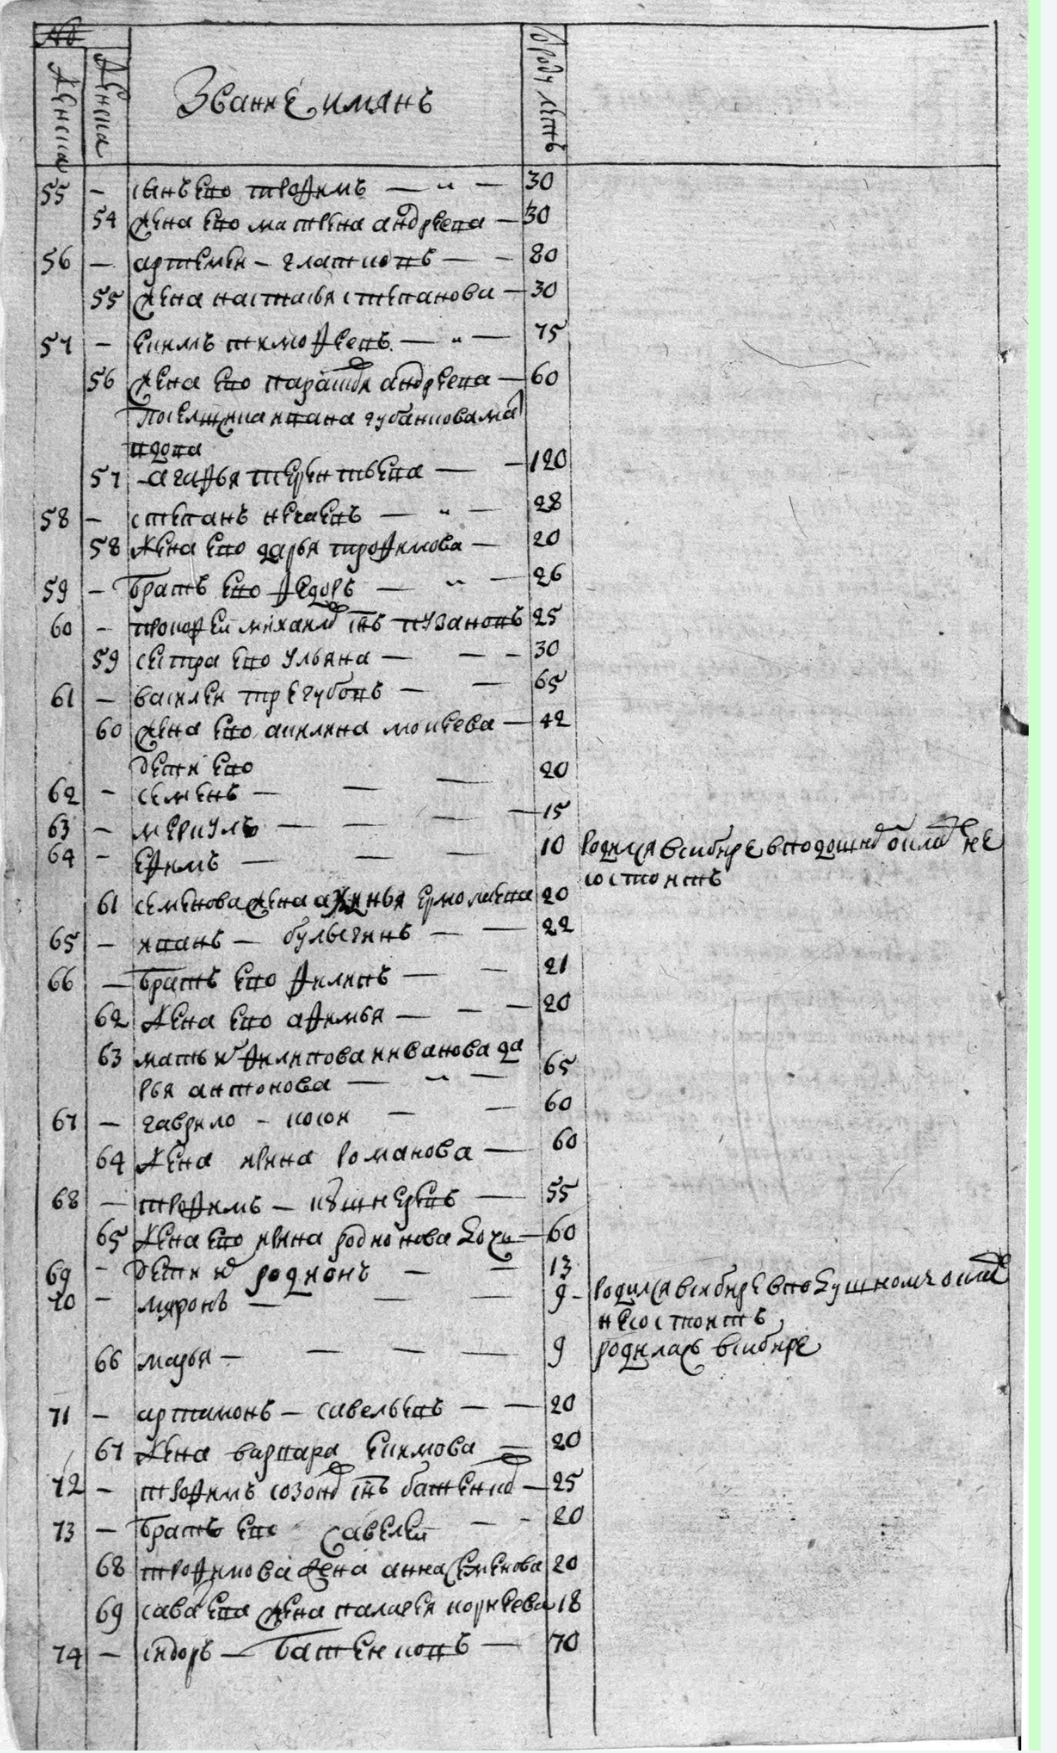 №
Званне имянъ
55 — сынъ ево трофимъ — " — 30
54 жена ево матрена андреева — 30
56 — артемеи — глотковъ — — 80
55 жена настасья степанова — 30
57 — екимъ тимофеевъ — " — 75
56 жена ево андреева — 60
57 — агафья терентьева — — 120
58 — степанъ нечаевъ — " — 28
58 жена ево дарья трофимова — 20
59 — братъ ево федоръ — " — 26
60 — прокофеи михаило снъ пузановъ 25
59 сестра ево ульяна — — — 30
61 — василеи трегубовъ — — 65
60 жена ево акилина мосеева — 42
дети ево
62 — семенъ — — — 20
63 — меркулъ — — — 15
64 — ефимъ — — — 10 родился всибире вподушно окладе не
состоитъ
61 семенова жена аксинья ермолаева 20
65 — иванъ — булыгинъ — — 22
66 — братъ ево филипъ — — 21
62 жена ево афимья — — — 20
63 мать их филипова иивановада
рья антонова — " — 65
67 — гаврило — косои — — 60
64 жена ирина романова — 60
68 — трофимъ — кушнеревъ — 55
65 жена ево ирина родионова — 60
69 — дети их родионъ — — 13
70 — миронъ — — — 9 — родился всибире
несостоитъ
66 марья — — — — 9 родилась всибире
71 — артамонъ — савельевъ — — 20
67 жена варвара екимова — 20
72 — трофимъ созоно снъ баженко — 25
73 — братъ ево савелеи — — 20
68 трофимова жена анна семенова 20
69 савелева жена палагея корнеева 18
74 — сидоръ — баженковъ — 70